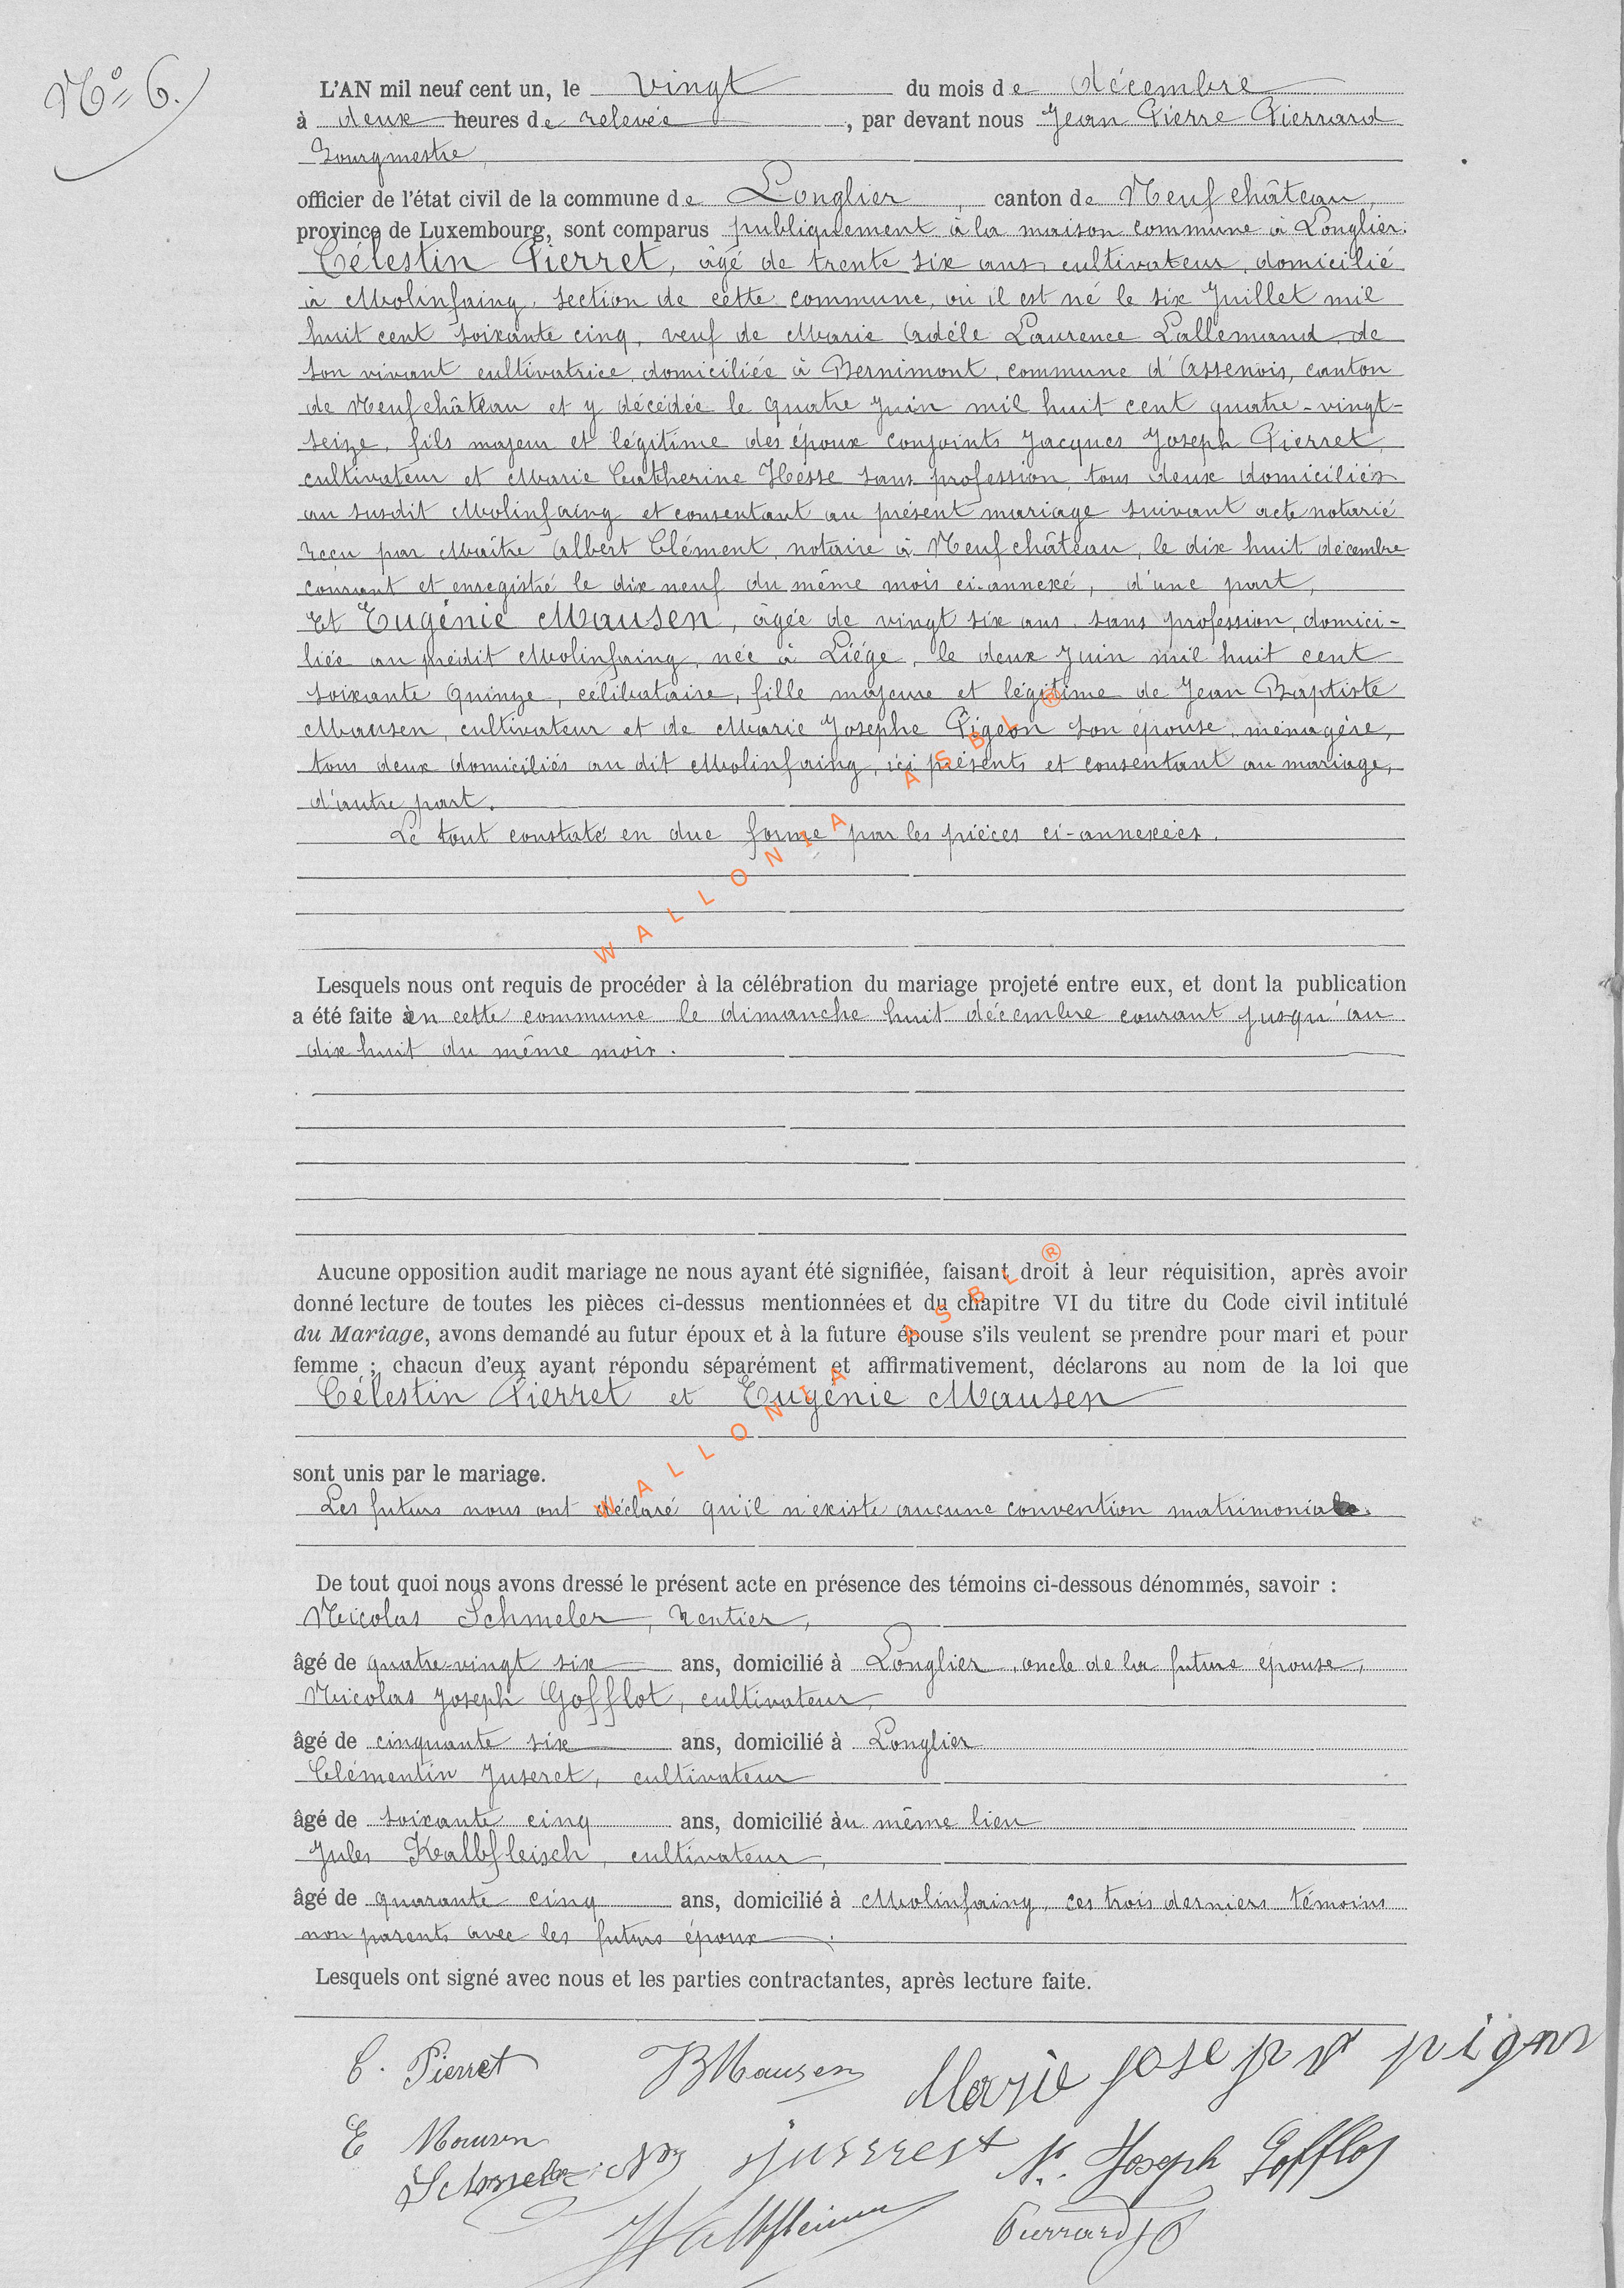 N° 6.
L'AN mil neuf cent un, le vingt du mois de décembre
à deux heures de relevée, par devant nous Jean Pierre Pierrard
Bourgmestre
officier de l'état civil de la commune de Longlier, canton de Neufchâteau,
province de Luxembourg, sont comparus publiquement à la maison commune à Longlier:
Célestin Pierret, âgé de trente six ans, cultivateur, domicilié
à Molinfaing, section de cette commune, où il est né le six Juillet mil
huit cent soixante cinq, veuf de Marie Adèle Laurence Lallemand, de
son vivant cultivatrice, domiciliée à Bernimont, commune d'Assenois, canton
de Neufchâteau et y décédée le quatre Juin mil huit cent quatre-vingt-
seize, fils majeur et légitime des époux conjoints Jacques Joseph Pierret,
cultivateur et Marie Catherine Hesse sans profession, tous deux domiciliés
au susdit Molinfaing et consentant au présent mariage suivant acte notarié
reçu par Maître Albert Clément, notaire à Neufchâteau, le dix huit décembre
courant et enregistré le dix neuf du même mois ci-annexé, d'une part,
Et Eugénie Mausen, âgée de vingt six ans, sans profession, domici-
liée au prédit Molinfaing, née à Liége, le deux Juin mil huit cent
soixante quinze, célibataire, fille majeure et légitime de Jean Baptiste
Mausen, cultivateur et de Marie Josephe Pigeon son épouse, ménagère,
tous deux domiciliés au dit Molinfaing, ici présents et consentant au mariage,
d'autre part.
Le tout constaté en due forme par les pièces ci-annexées.
WALLONIA ASBL ®
Lesquels nous ont requis de procéder à la célébration du mariage projeté entre eux, et dont la publication
a été faite en cette commune le dimanche huit décembre courant jusqu'au
dix huit du même mois.
Aucune opposition audit mariage ne nous ayant été signifiée, faisant droit à leur réquisition, après avoir
donné lecture de toutes les pièces ci-dessus mentionnées et du chapitre VI du titre du Code civil intitulé
du Mariage, avons demandé au futur époux et à la future épouse s'ils veulent se prendre pour mari et pour
femme ; chacun d'eux ayant répondu séparément et affirmativement, déclarons au nom de la loi que
Célestin Pierret et Eugénie Mausen
WALLONIA ASBL ®
sont unis par le mariage.
Les futurs nous ont déclaré qu'il n'existe aucune convention matrimoniale.
De tout quoi nous avons dressé le présent acte en présence des témoins ci-dessous dénommés, savoir :
Nicolas Schmeler, rentier,
âgé de quatre-vingt six ans, domicilié à Longlier, oncle de la future épouse,
Nicolas Joseph Gofflot, cultivateur,
âgé de cinquante six ans, domicilié à Longlier
Clémentin Juseret, cultivateur
âgé de soixante cinq ans, domicilié au même lieu
Jules Kalbfleisch, cultivateur,
âgé de quarante cinq ans, domicilié à Molinfaing, ces trois derniers témoins
non parents avec les futurs époux.
Lesquels ont signé avec nous et les parties contractantes, après lecture faite.
C. Pierret JBMausen Marie
E Mausen
Juserest N. Joseph Gofflot
Pierrard JP